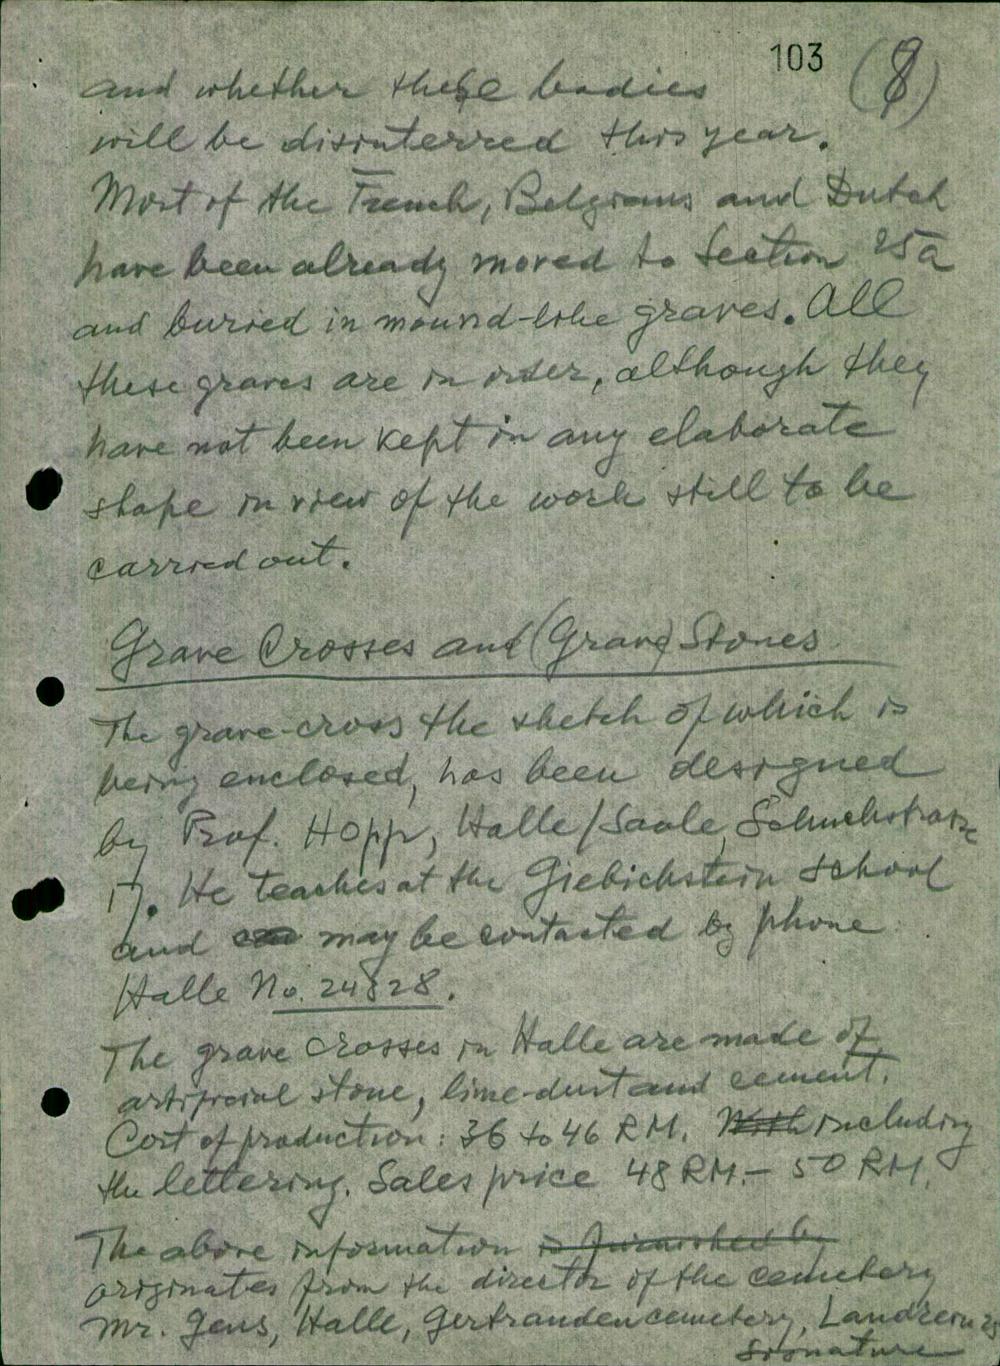 103 (8)
and whether these bodies
will be disinterred this year.
Most of the French, Belgians and Dutch
have been already moved to Section 25a
and buried in mound-like graves. All
these graves are in order, although they
have not been kept in any elaborate
shape in view of the work still to be
carried out.
Grave Crosses and (Grave) Stones
The grave-cross the sketch of which is
being enclosed, has been designed
by Prof. Hopp, Halle/Saale,
17. He teaches at the Giebichstein school
and may be contacted by phone
Halle No. 24828.
The grave crosses in Halle are made of
artificial stone, lime-dust and cement.
Cost of production: 36 to 46 RM. With including
the lettering. Sales price 48 RM.- 50 RM.
The above information is furnished by
originates from the director of the cemetery
Mr. Gens, Halle, Gertraudencemetery,
Signature